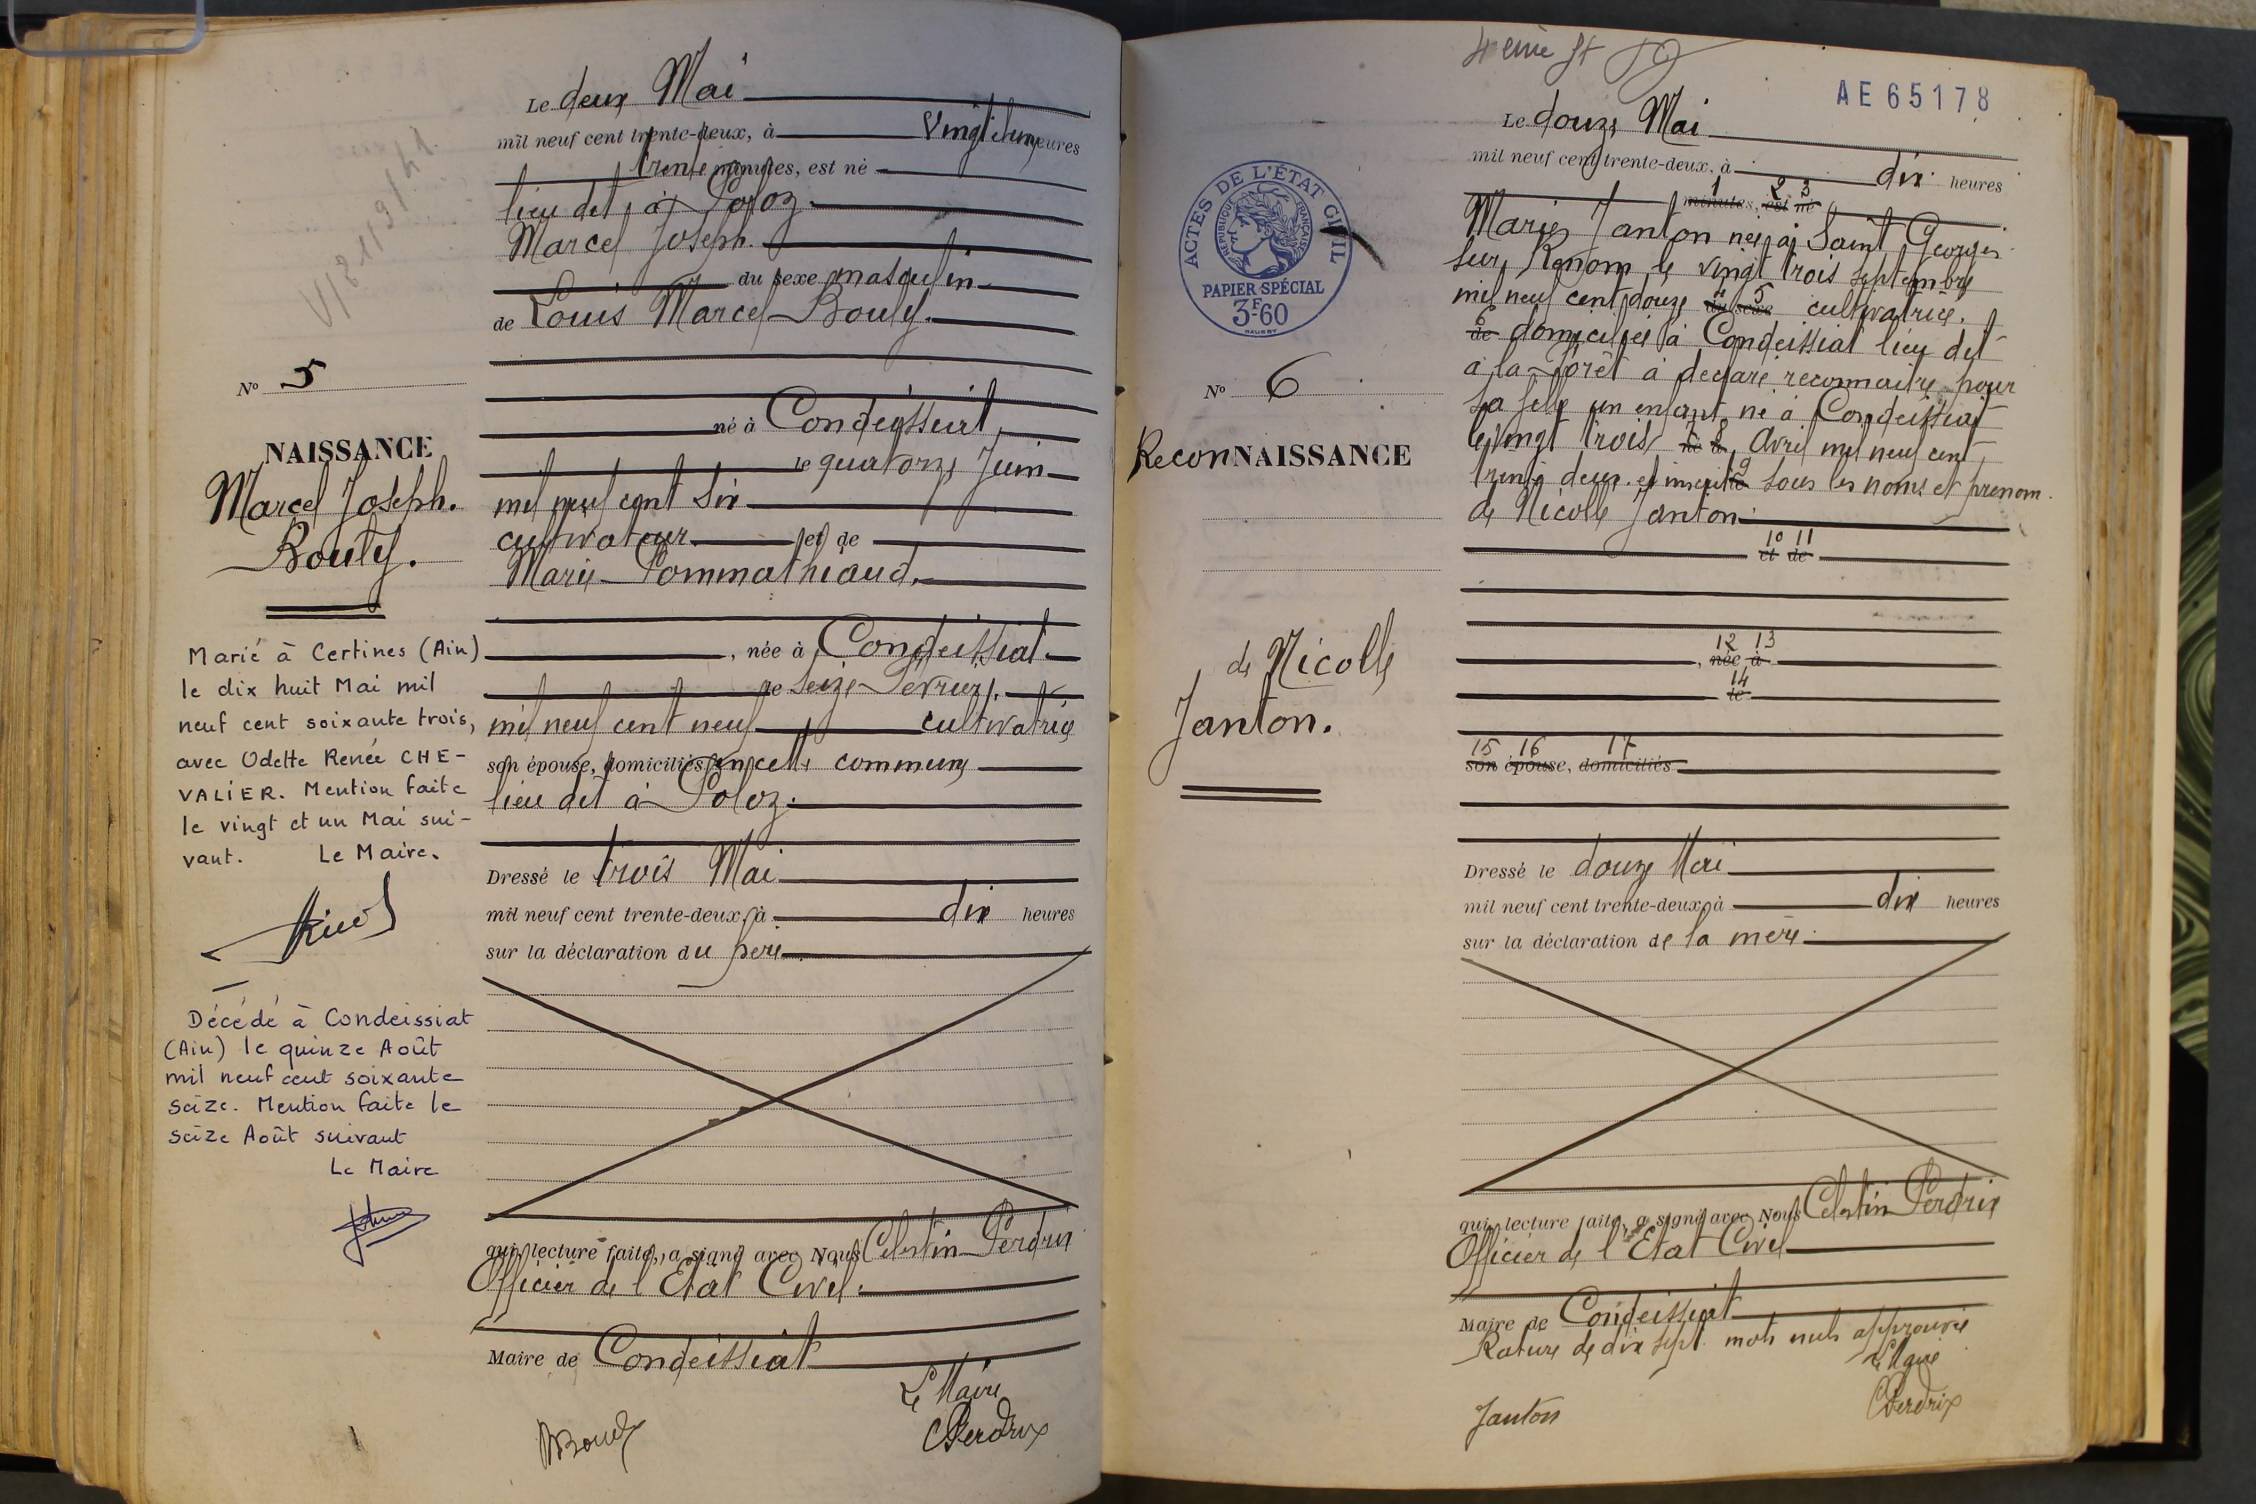 Le deux Mai
mil neuf cent trente-deux, à vingt et une heures
trente minutes, est né
lieu dit à Poloz
Marcel Joseph.
du sexe masculin
de Louis Marcel Bouly.
né à Condeissiat
le quatorze Juin
mil neuf cent six
cultivateur et de
Marie Pommathiaud.
, née à Condeissiat
le seize Fevrier.
mil neuf cent neuf cultivatrice
son épouse, domiciliés en cette commune
lieu dit à Poloz.
Dressé le trois Mai
mil neuf cent trente-deux, à dix heures
sur la déclaration du père
qui, lecture faite, a signé avec Nous Celestin Perdrix
Officier de l'Etat Civil.
Maire de Condeissiat
Le Maire
CPerdrix
No 5
NAISSANCE
Marcel Joseph.
Bouly.
Marié à Certines (Ain)
le dix huit Mai mil
neuf cent soixante trois,
avec Odette Renée CHE-
VALIER. Mention faite
le vingt et un Mai sui-
vant. Le Maire.
Décédé à Condeissiat
(Ain) le quinze Août
mil neuf cent soixante
seize. Mention faite le
seize Août suivant
Le Maire
4ème
AE65178
Le douze Mai
mil neuf cent trente-deux, à dix heures
1 2 3
minutes, est né
Marie Janton née à Saint Georges
sur Renom le vingt trois septembre
mil neuf cent douze 4 5 du sexe cultivatrice.
6 de domiciliée à Condeissiat lieu dit
à la Forêt a déclaré reconnaitre pour
sa fille un enfant né à Condeissiat
le vingt trois né à 8 Avril mil neuf cent
trente deux et inscrit le 9 sous les noms et prenom
de Nicolle Janton
10 11
et de
12 13
, née à
14
le
15 16 17
son épouse, domiciliés
Dressé le douze Mai
mil neuf cent trente-deux, à dix heures
sur la déclaration de la mère
qui, lecture faite, a signé avec Nous Celestin Perdrix
Officier de l'Etat Civil
Maire de Condeissiat
Rature de dix sept mots nuls approuvée
Le Maire
CPerdrix
Janton
ACTES DE L'ÉTAT CIVIL
RÉPUBLIQUE FRANÇAISE
PAPIER SPÉCIAL
3F60
No 6
ReconNAISSANCE
de Nicolle
Janton.